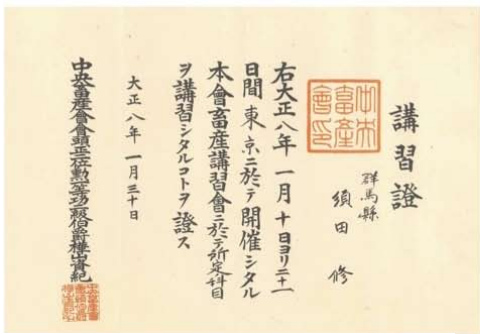 講習證
群馬縣
須田 修
中央畜產會印
右大正八年一月十日ヨリ二十一
日間東京ニ於テ開催シタル
本會畜産講習會ニ於テ所定科目
ヲ講習シタルコトヲ證ス
大正八年一月三十日
中央畜産會會頭正二位勲一等功二級伯爵樺山資紀